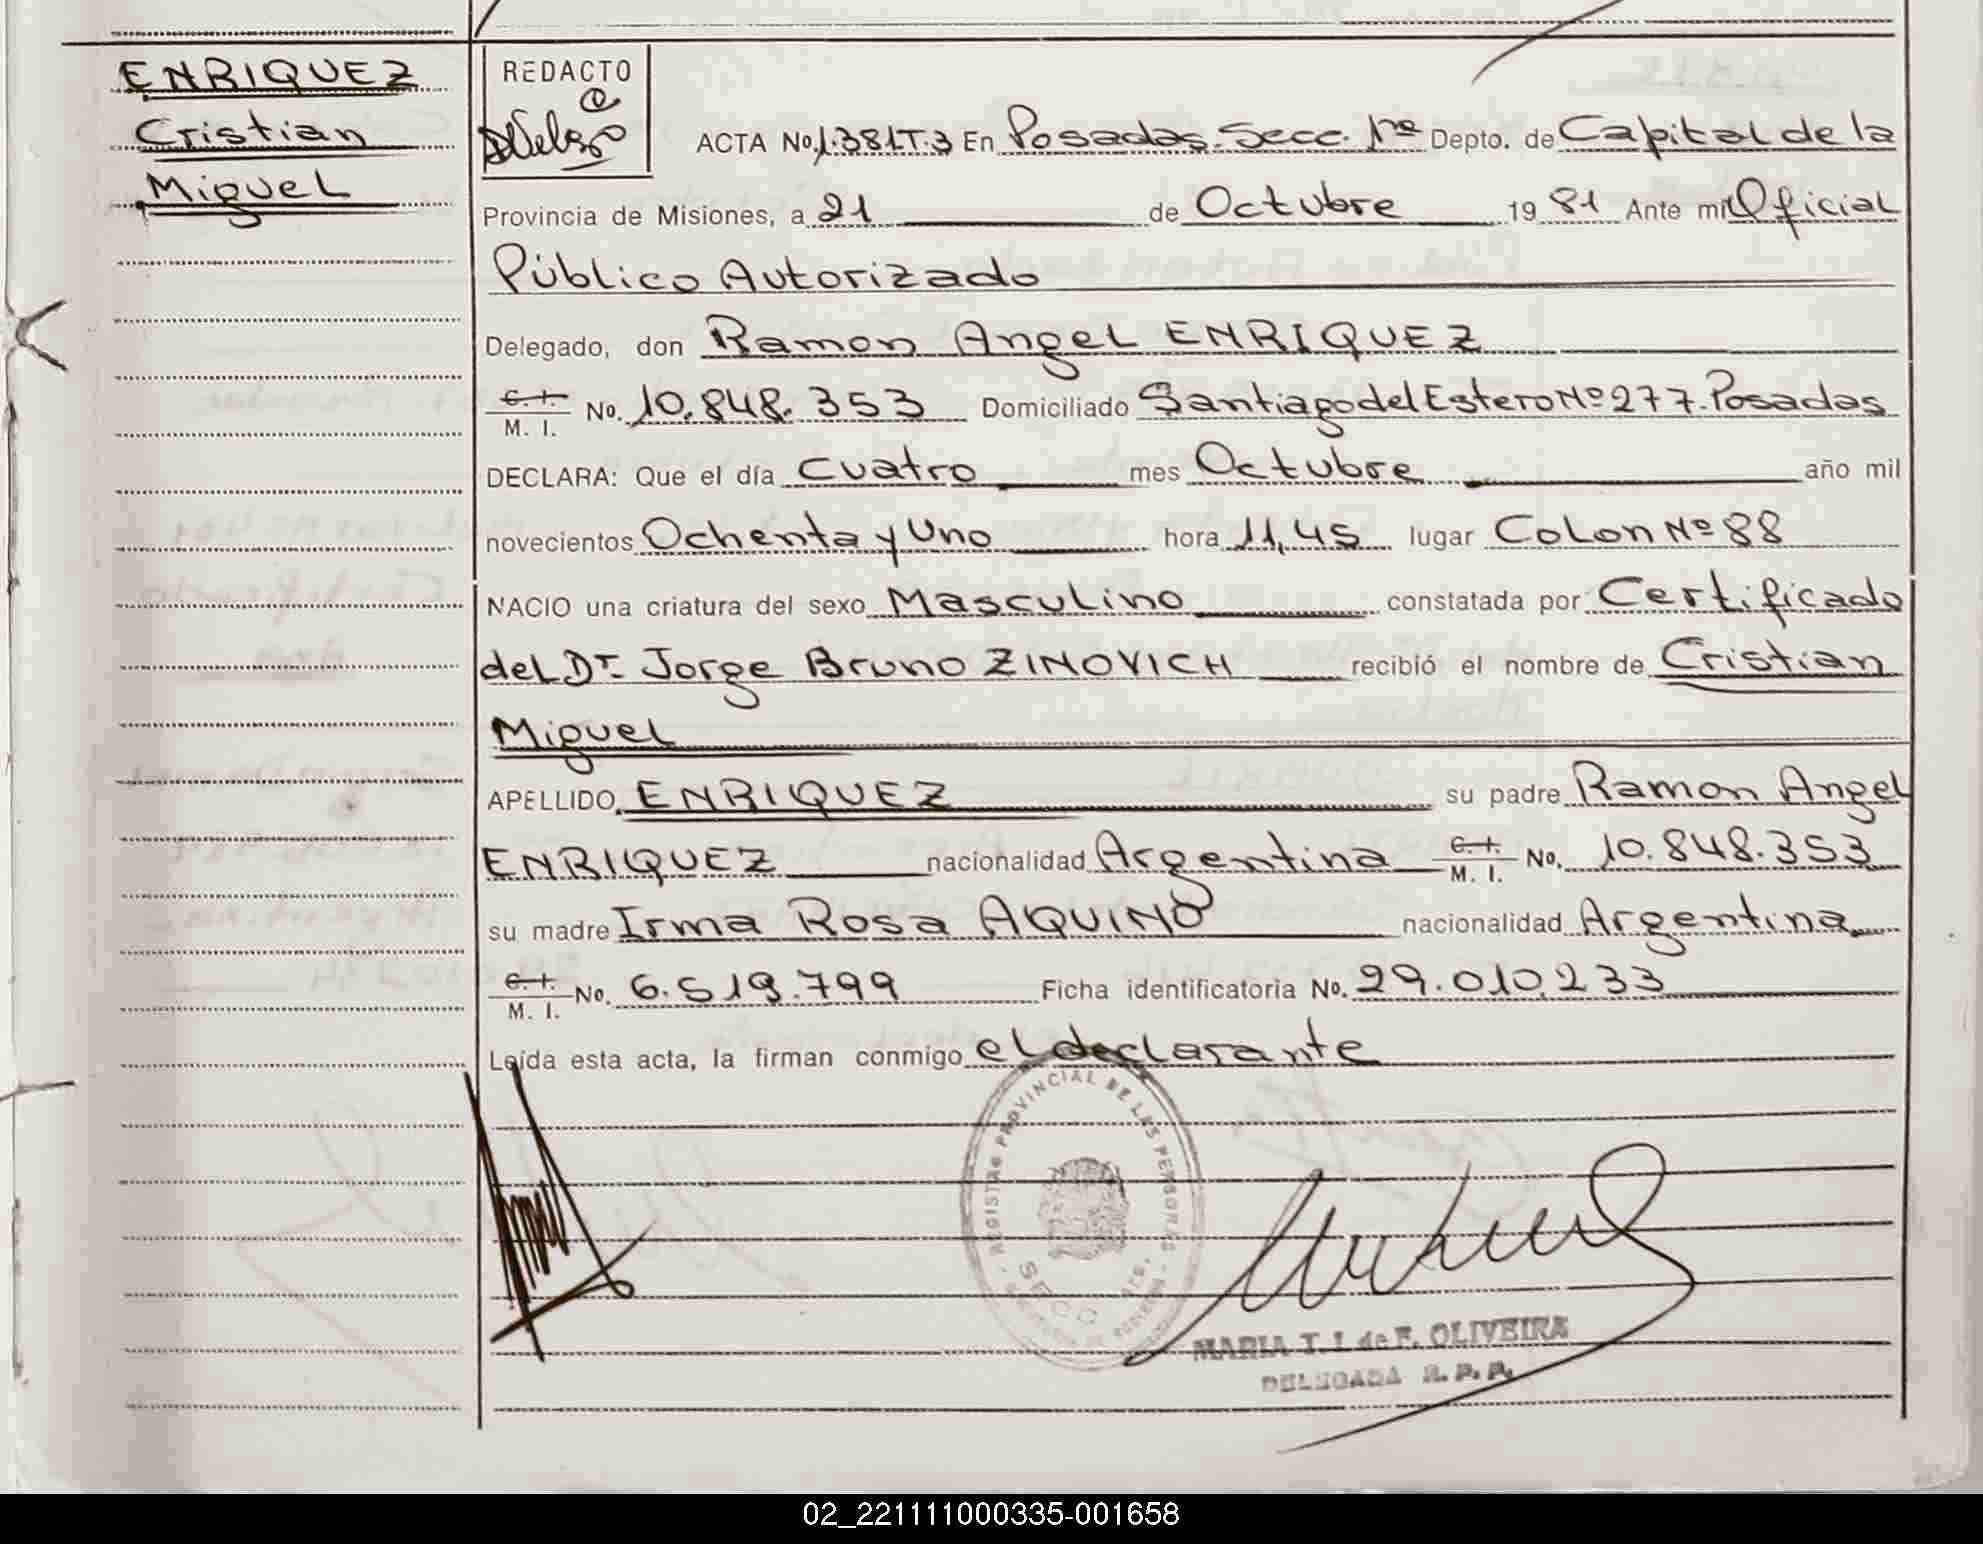 ENRIQUEZ
Cristian
Miguel
REDACTO
ACTA No. 1.381.T.3 En Posadas. Secc. 1ra Depto. de Capital de la
Provincia de Misiones, a 21 de Octubre 1981 Ante mi Oficial
Público Autorizado
Delegado, don Ramon Angel ENRIQUEZ
C. I.
M. I. No. 10.848.353 Domiciliado Santiago del Estero Nº 277. Posadas
DECLARA: Que el día cuatro mes Octubre año mil
novecientos Ochenta y Uno hora 11,45 lugar Colon Nº 88
NACIO una criatura del sexo Masculino constatada por Certificado
del Dr. Jorge Bruno ZINOVICH recibió el nombre de Cristian
Miguel
APELLIDO ENRIQUEZ su padre Ramon Angel
ENRIQUEZ nacionalidad Argentina C. I. M. I. No. 10.848.353
su madre Irma Rosa AQUINO nacionalidad Argentina
C. I.
M. I. No. 6.519.799 Ficha identificatoria No. 29.010.233
Leída esta acta, la firman conmigo el declarante
REGISTRO PROVINCIAL DE LAS PERSONAS
SECC
MARIA T. I. de F. OLIVEIRA
DELEGADA R. P. P.
02_221111000335-001658